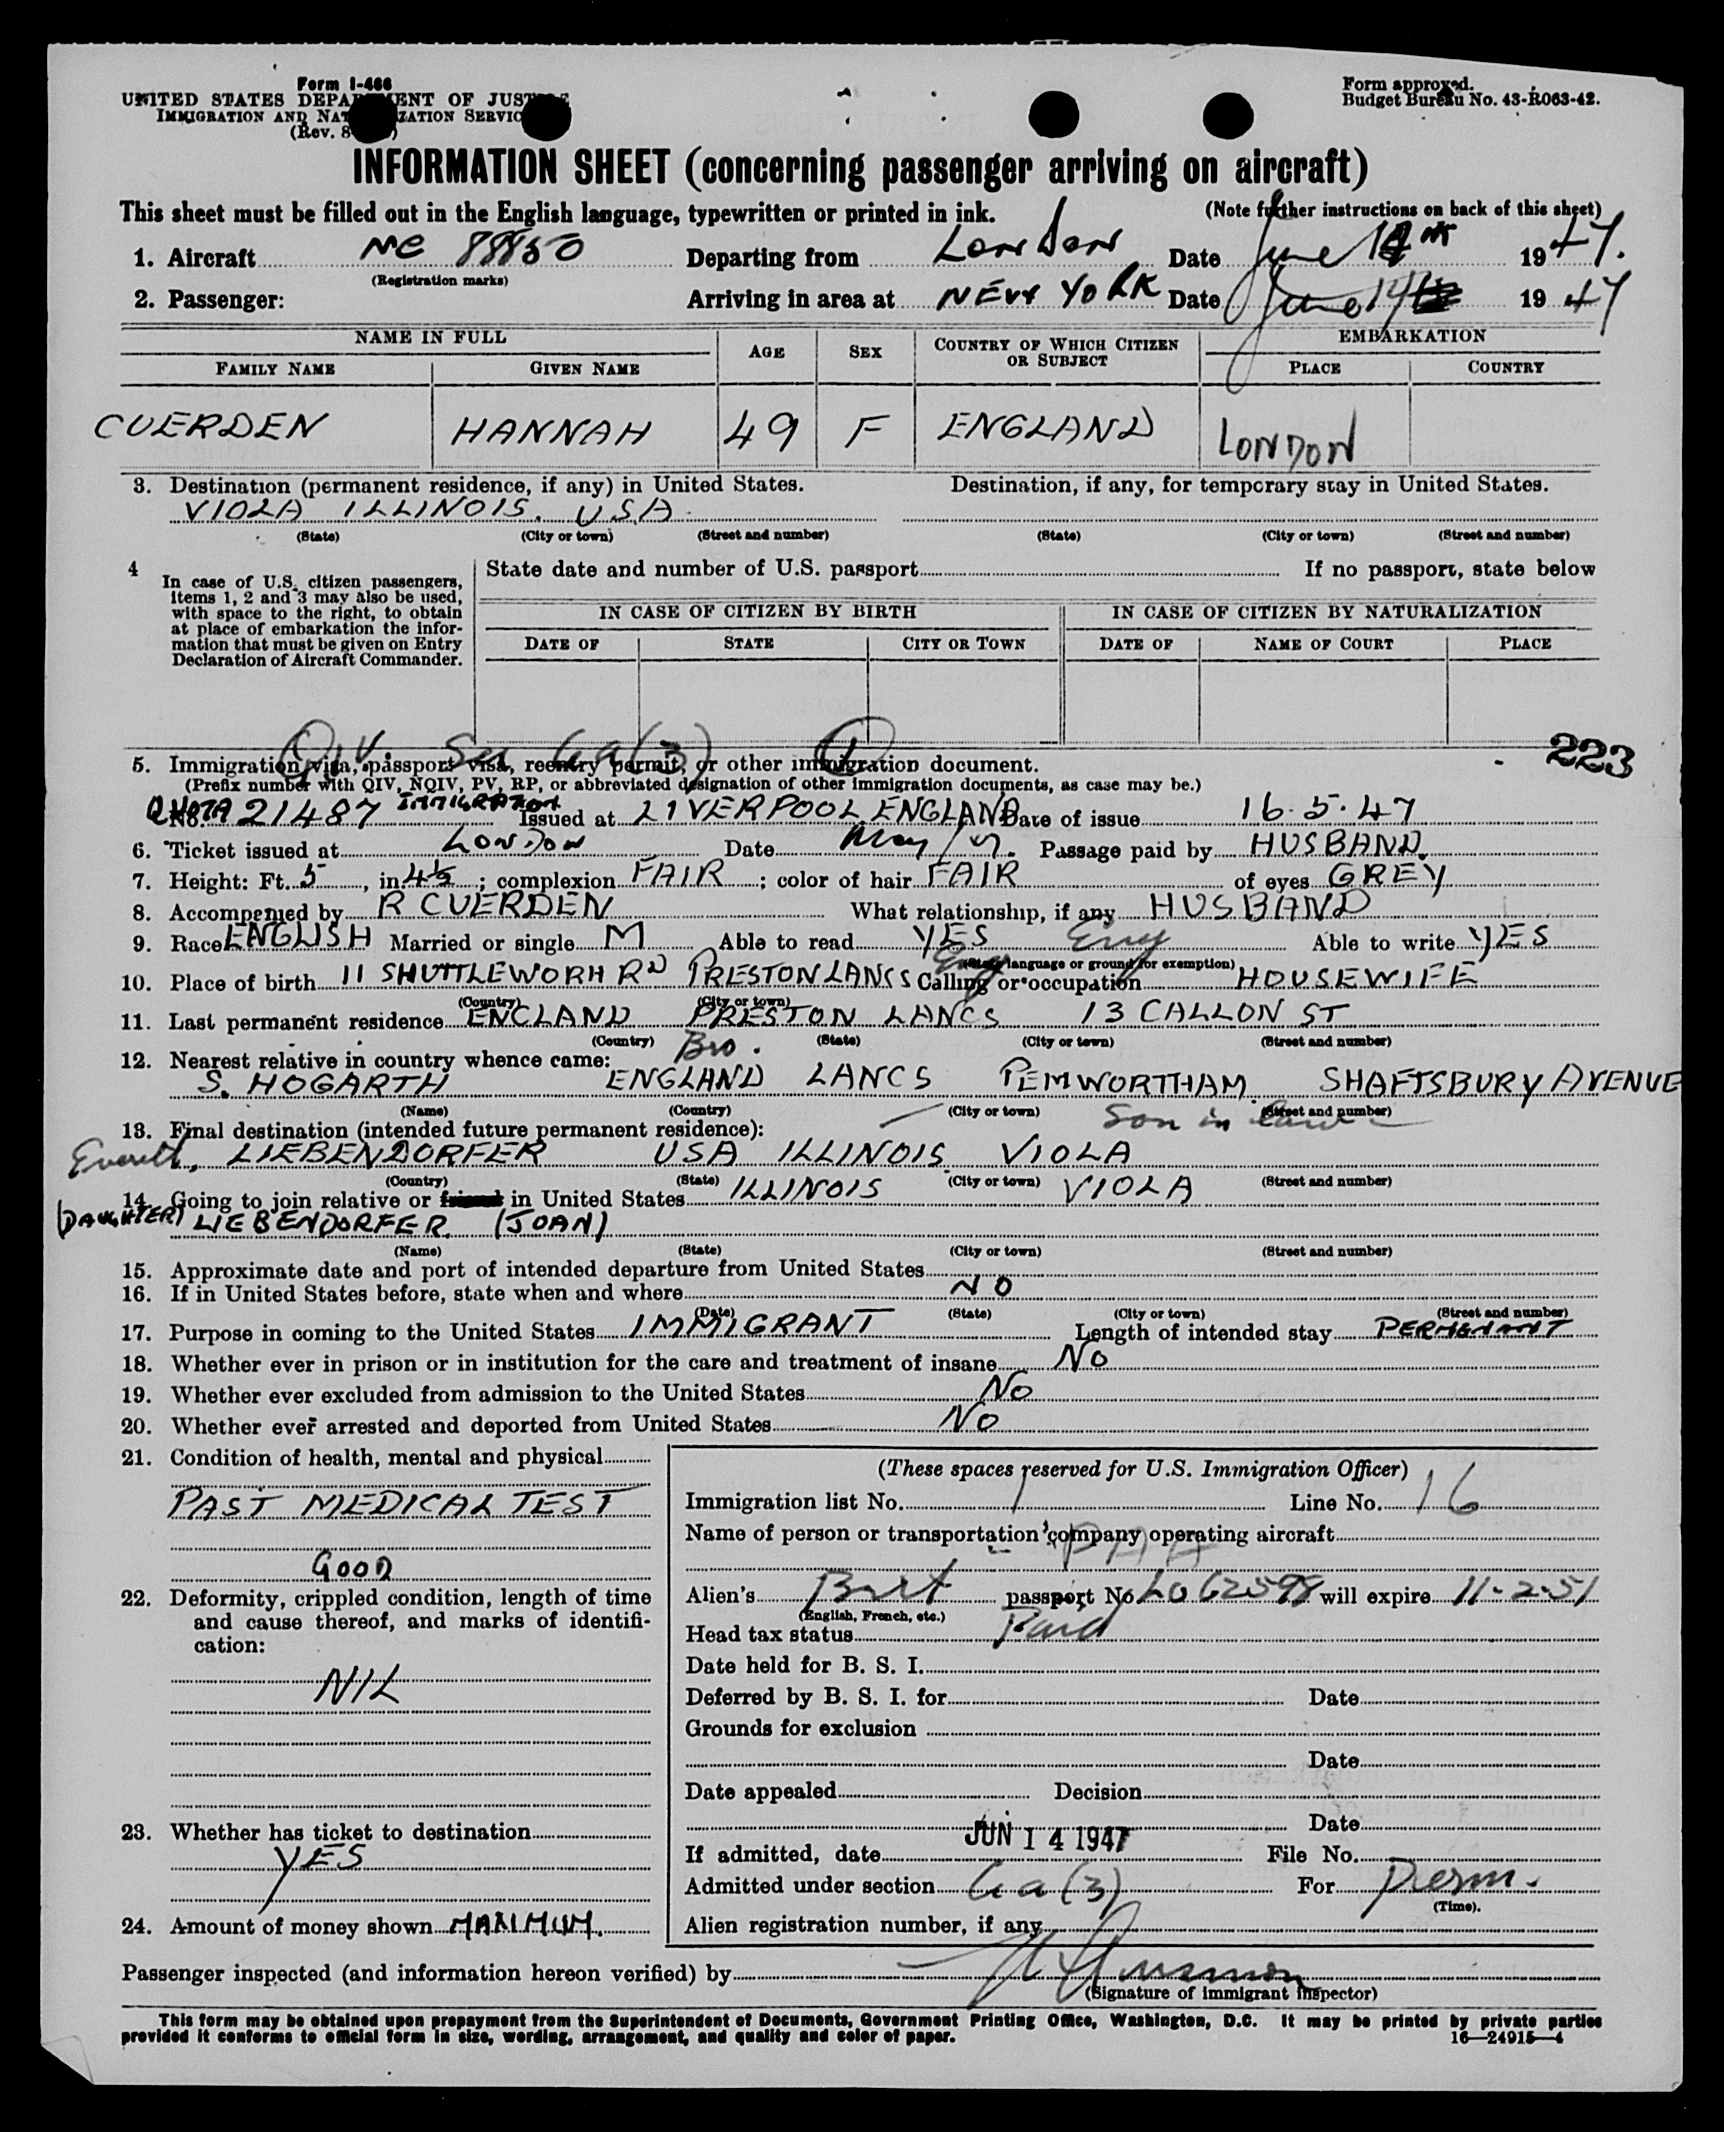 Form I-466
UNITED STATES DEPARTMENT OF JUSTICE
IMMIGRATION AND NATURALIZATION SERVICE
(Rev. 8
Form approved.
Budget Bureau No. 43-R063-42.
INFORMATION SHEET (concerning passenger arriving on aircraft)
This sheet must be filled out in the English language, typewritten or printed in ink. (Note further instructions on back of this sheet)
1. Aircraft NC 88850 Departing from LONDON Date June 1947.
(Registration marks)
2. Passenger: Arriving in area at NEW YORK Date June 14 1947
NAME IN FULL AGE SEX COUNTRY OF WHICH CITIZEN OR SUBJECT EMBARKATION
FAMILY NAME GIVEN NAME PLACE COUNTRY
CUERDEN HANNAH 49 F ENGLAND LONDON
3. Destination (permanent residence, if any) in United States. Destination, if any, for temporary stay in United States.
VIOLA ILLINOIS. USA.
(State) (City or town) (Street and number) (State) (City or town) (Street and number)
4 In case of U.S. citizen passengers, items 1, 2 and 3 may also be used, with space to the right, to obtain at place of embarkation the information that must be given on Entry Declaration of Aircraft Commander.
State date and number of U.S. passport If no passport, state below
IN CASE OF CITIZEN BY BIRTH IN CASE OF CITIZEN BY NATURALIZATION
DATE OF STATE CITY OR TOWN DATE OF NAME OF COURT PLACE
QIV. Sec 6a(3) 1
223
5. Immigration visa, passport visa, reentry permit, or other immigration document.
(Prefix number with QIV, NQIV, PV, RP, or abbreviated designation of other immigration documents, as case may be.)
QUOTA IMMIGRATION
No. 21487 Issued at LIVERPOOL ENGLAND Date of issue 16.5.47
6. Ticket issued at LONDON Date May/47. Passage paid by HUSBAND.
7. Height: Ft. 5, in 4½; complexion FAIR; color of hair FAIR of eyes GREY
8. Accompanied by R CUERDEN What relationship, if any HUSBAND
9. Race ENGLISH Married or single M Able to read YES Eng Able to write YES
Eng (State language or ground for exemption)
10. Place of birth 11 SHUTTLEWORH RD PRESTON LANCS Calling or occupation HOUSEWIFE
(Country) (City or town)
11. Last permanent residence ENGLAND PRESTON LANCS 13 CALLON ST
(Country) (State) (City or town) (Street and number)
12. Nearest relative in country whence came: Bro.
S. HOGARTH ENGLAND LANCS PEMWORTHAM. SHAFTSBURY AVENUE
(Name) (Country) (City or town) (Street and number)
13. Final destination (intended future permanent residence): Son in law
Everett, LIEBENDORFER USA ILLINOIS VIOLA
(Country) (State) (City or town) (Street and number)
14. Going to join relative or friend in United States ILLINOIS VIOLA
(DAUGHTER) LIEBENDORFER. (JOAN)
(Name) (State) (City or town) (Street and number)
15. Approximate date and port of intended departure from United States
16. If in United States before, state when and where NO
(Date) (State) (City or town) (Street and number)
17. Purpose in coming to the United States IMMIGRANT Length of intended stay PERMENANT
18. Whether ever in prison or in institution for the care and treatment of insane NO
19. Whether ever excluded from admission to the United States NO
20. Whether ever arrested and deported from United States NO
21. Condition of health, mental and physical
PAST MEDICAL TEST
GOOD
22. Deformity, crippled condition, length of time
and cause thereof, and marks of identifi-
cation:
NIL
23. Whether has ticket to destination
YES
24. Amount of money shown MAXIMUM.
(These spaces reserved for U.S. Immigration Officer)
Immigration list No. 1 Line No. 16
Name of person or transportation company operating aircraft
PAA
Alien's Brit passport No. L062598 will expire 11-2-51
(English, French, etc.)
Head tax status Paid
Date held for B. S. I.
Deferred by B. S. I. for Date
Grounds for exclusion
Date
Date appealed Decision
Date
If admitted, date JUN 14 1947 File No.
Admitted under section 6a(3) For Perm.
(Time).
Alien registration number, if any
Passenger inspected (and information hereon verified) by
(Signature of immigrant inspector)
This form may be obtained upon prepayment from the Superintendent of Documents, Government Printing Office, Washington, D.C. It may be printed by private parties
provided it conforms to official form in size, wording, arrangement, and quality and color of paper. 16—24915-4